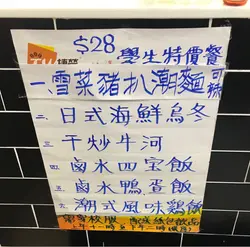 $28 學生特價餐
一、雪菜豬扒潮麵
二、日式海鮮烏冬
三、干炒牛河
四、鹵水四宝飯
五、鹵水鴨蛋飯
六、潮式風味鷄飯